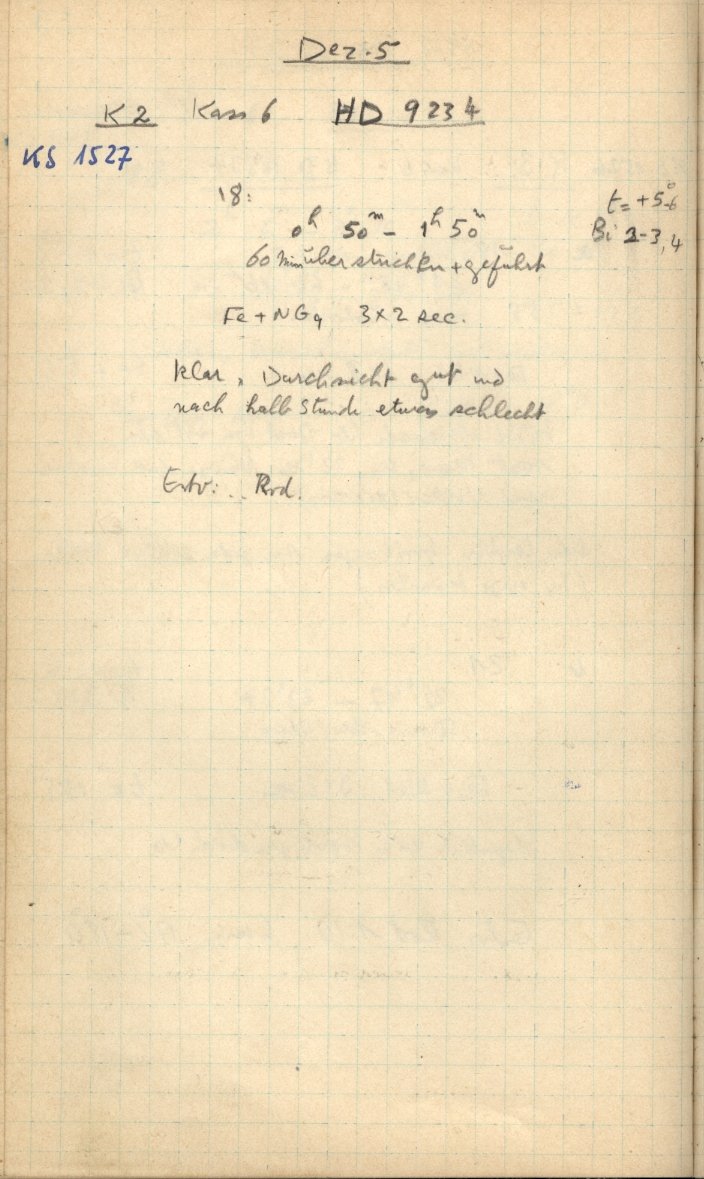 Dez. 5
K2 Kass 6 HD 9234
KS 1527
18:
t = +5°-6
0h 50m - 1h 50m
Bi 2-3,4
60 min überstrichen + geführt
Fe + NG4 3x2 sec.
klar, Durchsicht gut und
nach halb Stunde etwas schlecht
Entw: .. Rod.